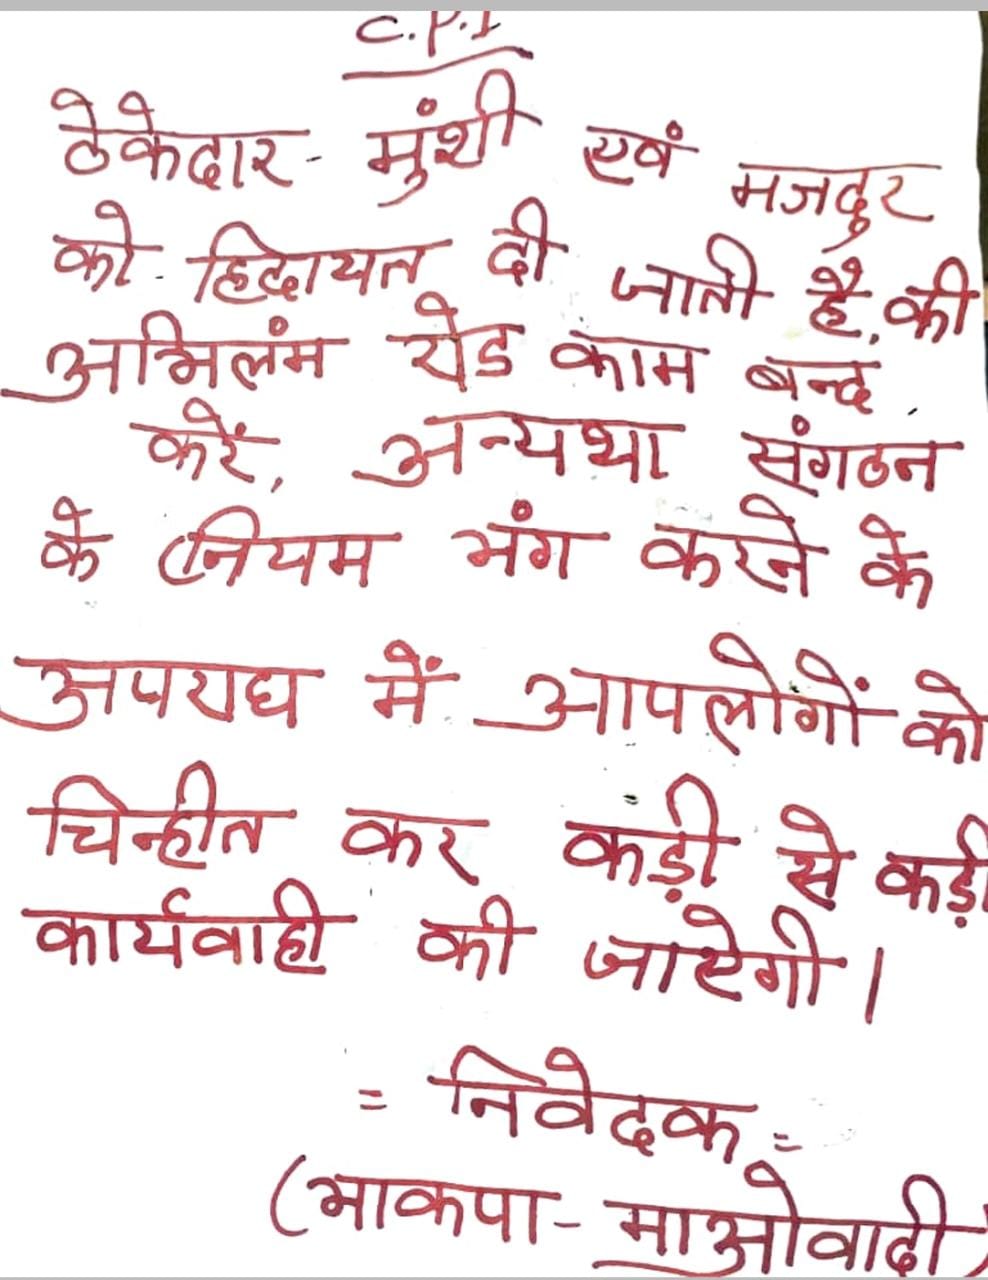 C.P.I
ठेकेदार - मुंशी एवं मजदुर
को हिदायत दी जाती है, की
अभिलंम रोड काम बन्द
करें, अन्यथा संगठन
के नियम भंग करने के
अपराध में आपलोगों को
चिन्हीत कर कड़ी से कड़ी
कार्यवाही की जाऐगी।
= निवेदक =
(भाकपा - माओवादी)